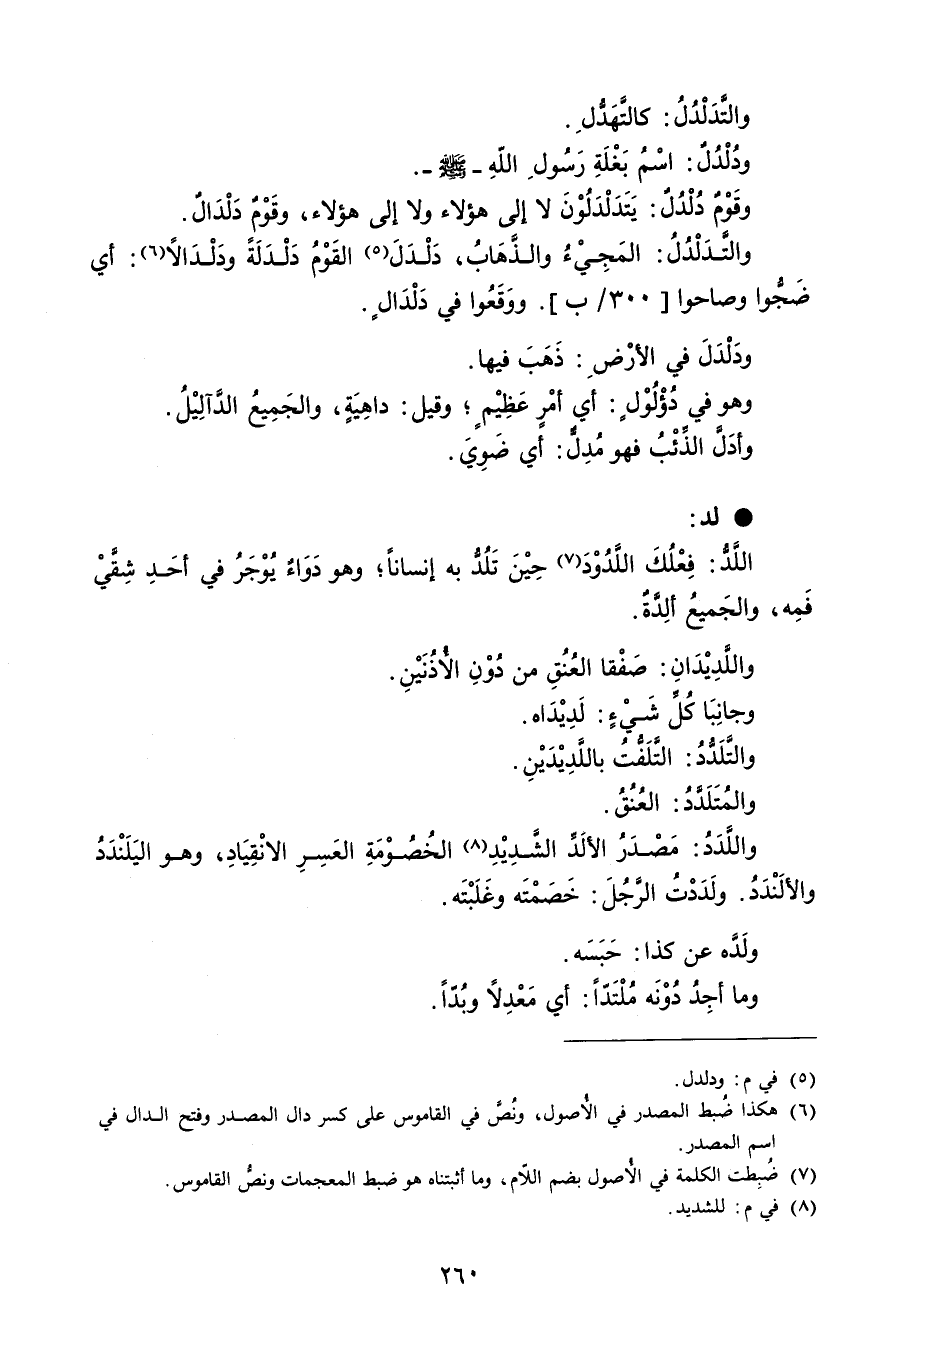 والتَّدَلْدُلُ: كالتَّهَدُّلِ.
ودُلْدُلٌ: اسْمُ بَغْلَةِ رَسُولِ اللّهِ ـ ﷺ ـ.
وقَوْمٌ دُلْدُلٌ: يَتَدَلْدَلُوْنَ لا إلى هؤلاء ولا إلى هؤلاء، وقَوْمٌ دَلْدَالٌ.
والتَّدَلْدُلُ: المَجِيْءُ والذَّهابُ، دَلْدَلَ(٥) القَوْمُ دَلْدَلَةً ودَلْدَالاً(٦): أي
ضَجُّوا وصاحوا [٣٠٠/ ب]. ووَقَعُوا في دَلْدَالٍ.
ودَلْدَلَ في الأرْضِ: ذَهَبَ فيها.
وهو في دُؤْلُوْلٍ: أي أمْرٍ عَظِيْمٍ؛ وقيل: داهِيَةٍ، والجَمِيعُ الدَّآلِيْلُ.
وأدَلَّ الذِّئْبُ فهو مُدِلٌّ: أي ضَوِيَ.
● لد:
اللَّدُّ: فِعْلُكَ اللَّدُوْدَ(٧) حِيْنَ تَلُدُّ به إنساناً؛ وهو دَوَاءٌ يُوْجَرُ في أحَدِ شِقَّيْ
فَمِه، والجَميعُ ألِدَّةٌ.
واللَّدِيْدَانِ: صَفْقا العُنُقِ من دُوْنِ الأُذُنَيْنِ.
وجانِبَا كُلِّ شَيْءٍ: لَدِيْدَاه.
والتَّلَدُّدُ: التَّلَفُّتُ باللَّدِيْدَيْنِ.
والمُتَلَدَّدُ: العُنُقُ.
واللَّدَدُ: مَصْدَرُ الألَدِّ الشَّدِيْدِ(٨) الخُصُوْمَةِ العَسِرِ الانْقِيَادِ، وهو اليَلَنْدَدُ
والألَنْدَدُ. ولَدَدْتُ الرَّجُلَ: خَصَمْتَه وغَلَبْتَه.
ولَدَّه عن كذا: حَبَسَه.
وما أجِدُ دُوْنَه مُلْتَدّاً: أي مَعْدِلاً وبُدّاً.
(٥) في م: ودلدل.
(٦) هكذا ضُبط المصدر في الأُصول، ونُصَّ في القاموس على كسر دال المصدر وفتح الدال في
اسم المصدر.
(٧) ضُبِطت الكلمة في الأُصول بضم اللّام، وما أثبتناه هو ضبط المعجمات ونصُّ القاموس.
(٨) في م: للشديد.
٢٦٠